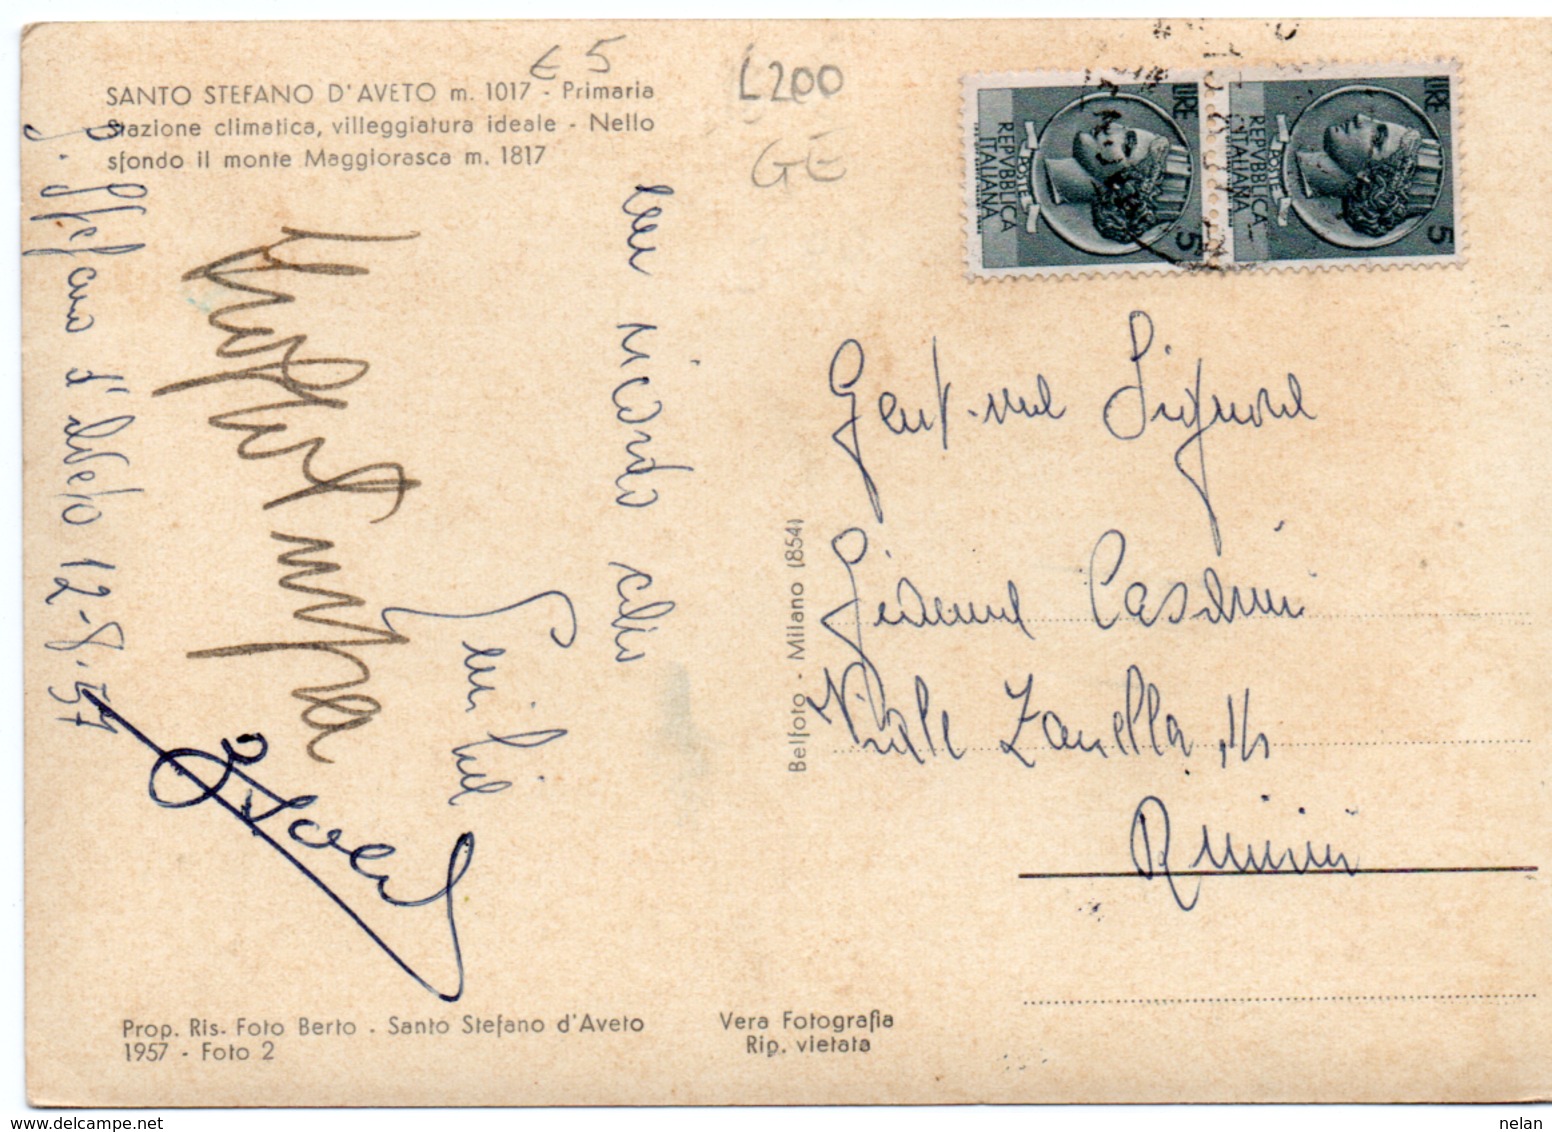 € 5
L200
GE
SANTO STEFANO D'AVETO m. 1017 - Primaria
stazione climatica, villeggiatura ideale - Nello
sfondo il monte Maggiorasca m. 1817
S. Stefano d'Aveto 12-8-57
un ricordo
LIRE
REPVBBLICA
ITALIANA
POSTE
5
LIRE
REPVBBLICA
ITALIANA
POSTE
5
Gent.me Signore
Casanni
Viale Zanella, 14
Rimini
Belfoto - Milano (854)
Prop. Ris. Foto Berto - Santo Stefano d'Aveto
1957 - Foto 2
Vera Fotografia
Rip. vietata
www.delcampe.net
nelan